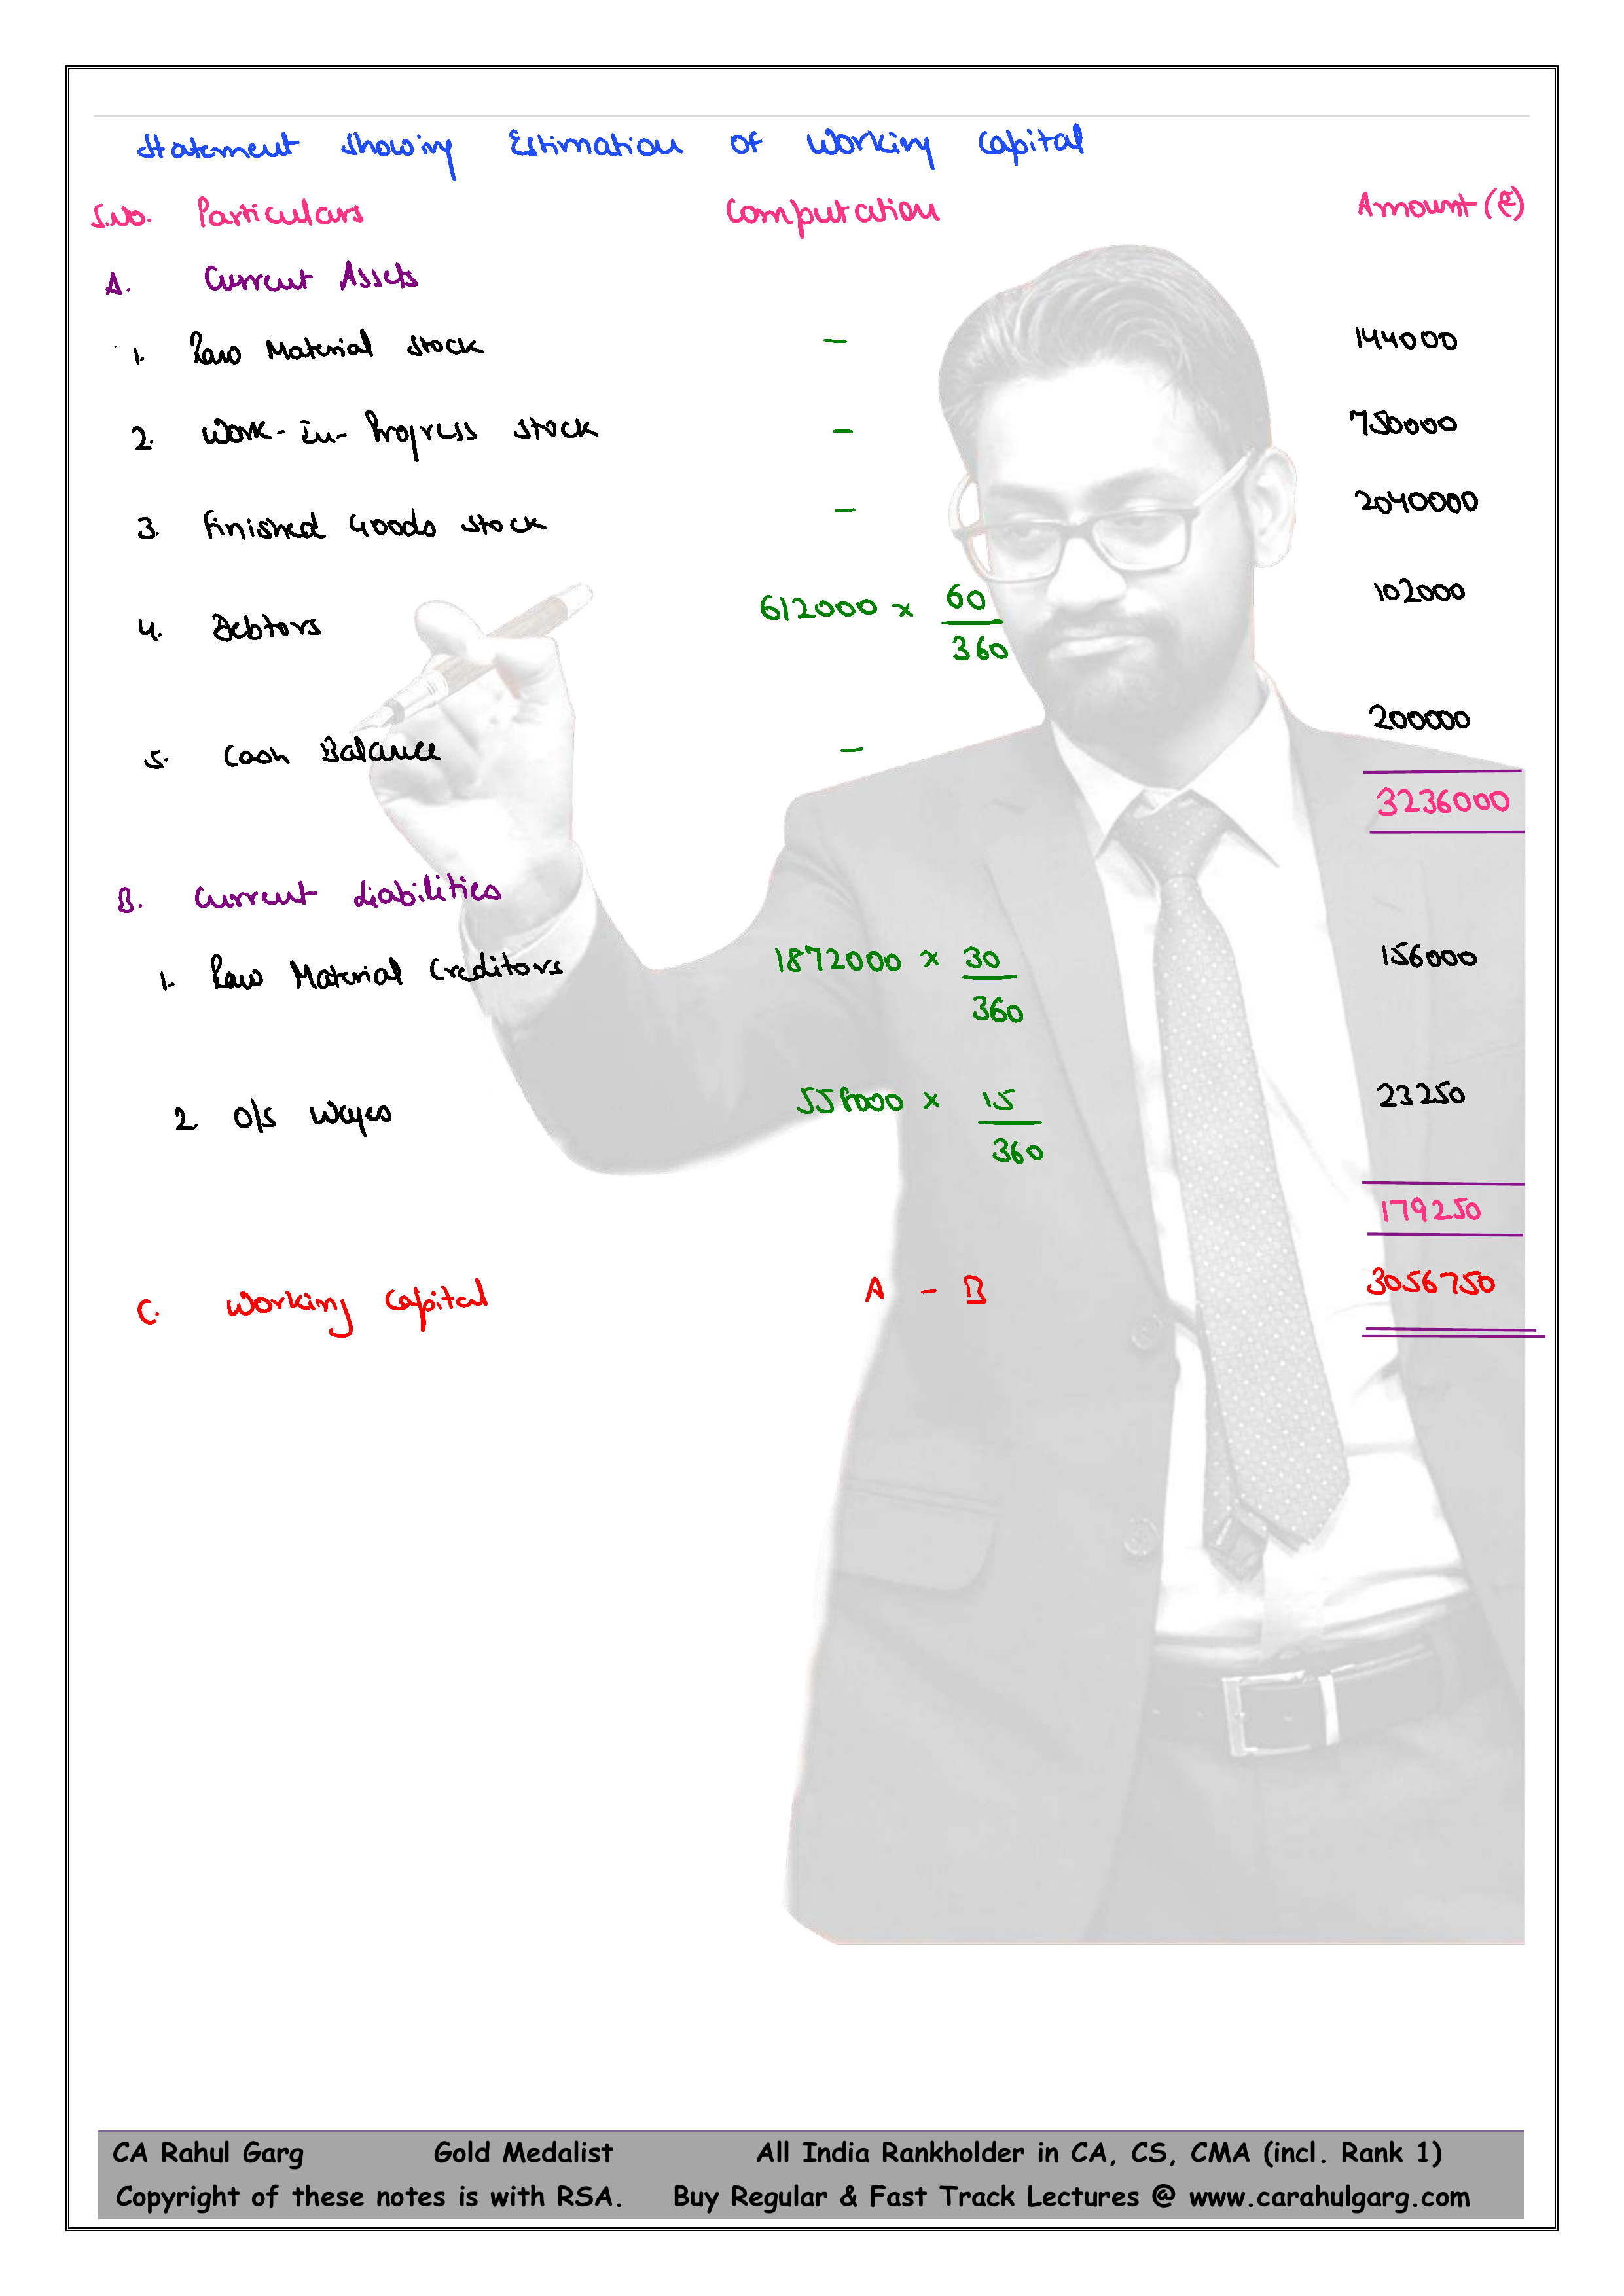 Statement Showing Estimation of Working Capital
S.No. Particulars Computation Amount (₹)
A. Current Assets
1. Raw Material Stock - 144000
2. Work-In-Progress Stock - 750000
3. Finished Goods Stock - 2040000
4. Debtors 612000 × 60/360 102000
5. Cash Balance - 200000
3236000
B. Current Liabilities
1. Raw Material Creditors 1872000 × 30/360 156000
2. O/s Wages 558000 × 15/360 23250
179250
C. Working Capital A - B 3056750
CA Rahul Garg Gold Medalist All India Rankholder in CA, CS, CMA (incl. Rank 1)
Copyright of these notes is with RSA. Buy Regular & Fast Track Lectures @ www.carahulgarg.com